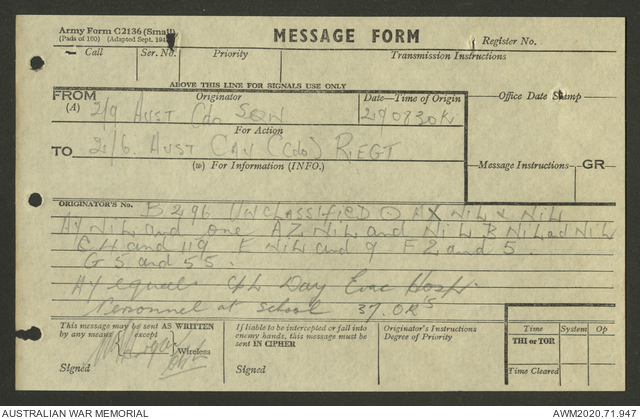 Army Form C2136 (Small)
(Pads of 100) (Adapted Sept. 194
MESSAGE FORM
Register No.
Call Ser. No. Priority Transmission Instructions
ABOVE THIS LINE FOR SIGNALS USE ONLY
FROM Originator Date—Time of Origin Office Date Stamp
(A) 2/9 AUST Cdo SQN 290830K
For Action
TO 2/6 AUST CAV (Cdo) REGT
(W) For Information (INFO.) Message Instructions GR
ORIGINATOR'S No. B296 UNCLASSIFIED O AX NIL & NIL
AY NIL and one AZ NIL and NIL B NIL and NIL
C 4 and 119 E NIL and 9 F 2 and 5
G 5 and 55.
AY equals Day Evac Hosp.
Personnel at School 37. OR's
This message may be sent AS WRITTEN
by any means except
Wireless
Signed
If liable to be intercepted or fall into
enemy hands, this message must be
sent IN CIPHER
Signed
Originator's Instructions
Degree of Priority
Time System Op
THI or TOR
AUSTRALIAN WAR MEMORIAL AWM2020.71.947